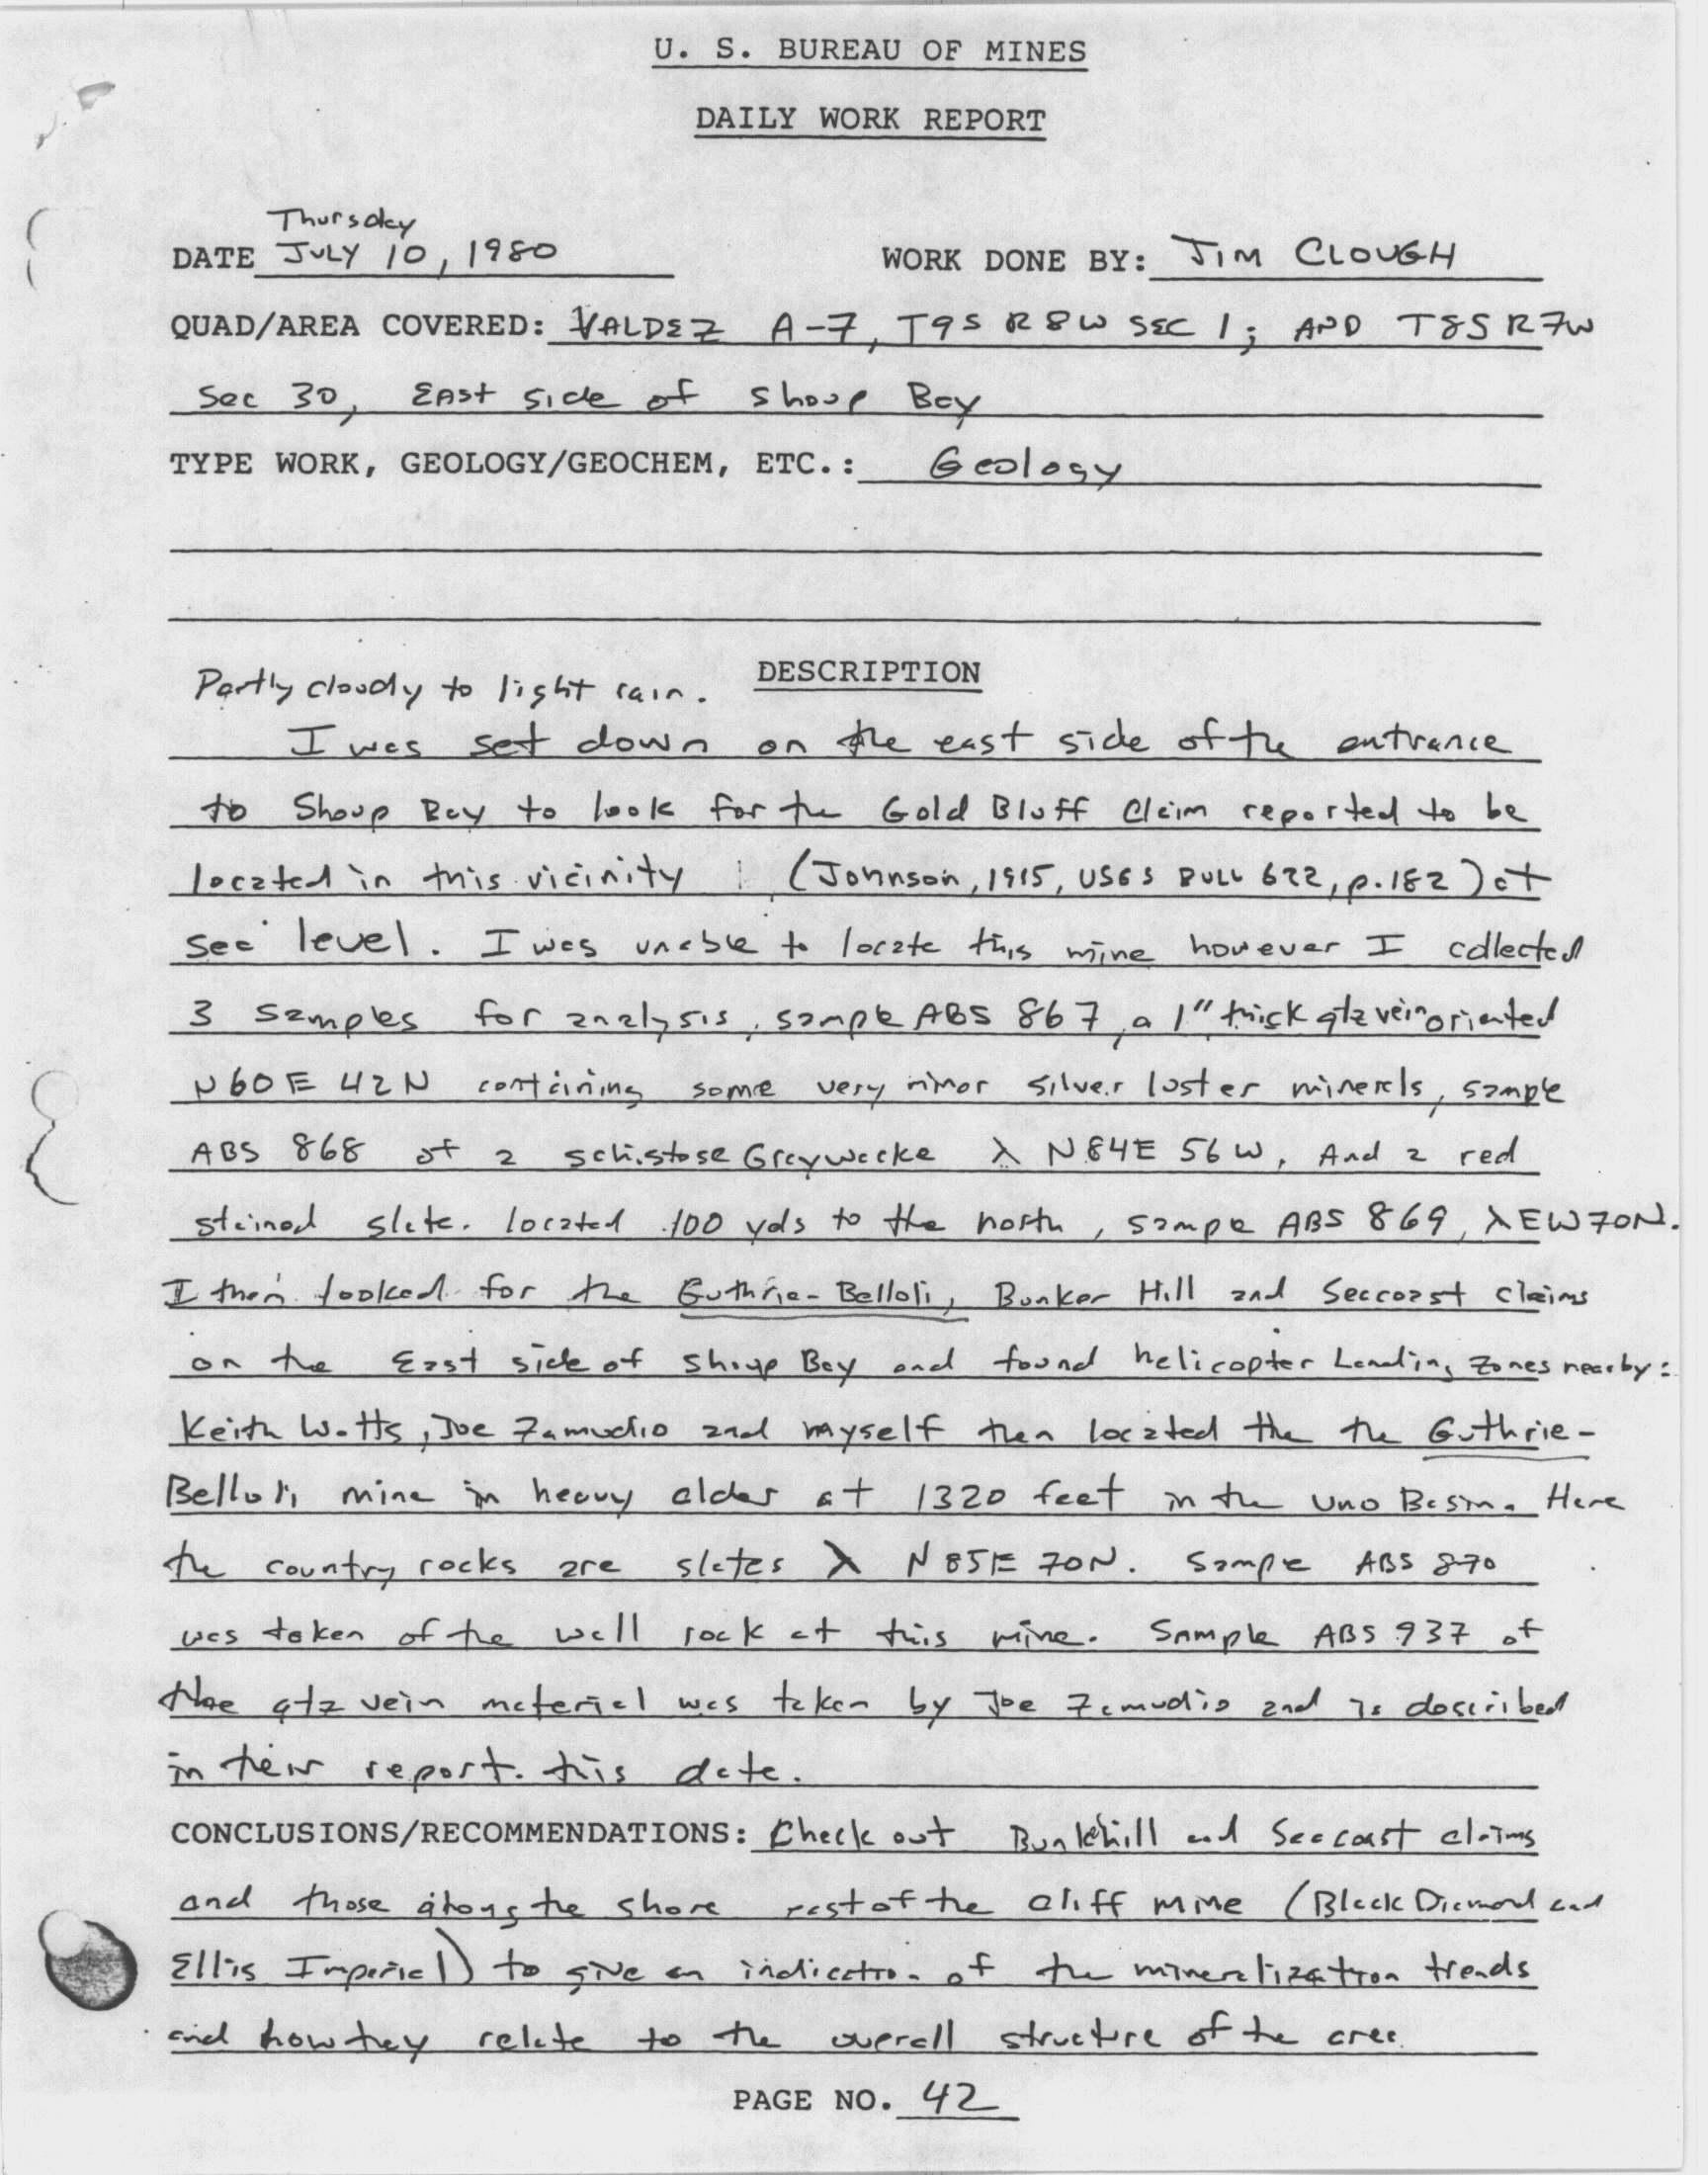 U. S. BUREAU OF MINES
DAILY WORK REPORT
Thursday
DATE JULY 10, 1980 WORK DONE BY: JIM CLOUGH
QUAD/AREA COVERED: VALDEZ A-7, T9S R8W SEC 1; AND T8S R7W
Sec 30, EAST side of Shoup Bay
TYPE WORK, GEOLOGY/GEOCHEM, ETC.: Geology
DESCRIPTION
Partly cloudy to light rain.
I was set down on the east side of the entrance
to Shoup Bay to look for the Gold Bluff Claim reported to be
located in this vicinity (Johnson, 1915, USGS BULL 622, p.182) at
sea level. I was unable to locate this mine however I collected
3 samples for analysis, sample ABS 867, a 1" thick qtz vein oriented
N60E 42N containing some very minor silver luster minerals, sample
ABS 868 of a schistose Greywacke λ N84E 56W, And a red
stained slate located 100 yds to the north, sample ABS 869, λ EW 70N.
I then looked for the Guthrie-Belloli, Bunker Hill and Seacoast claims
on the East side of Shoup Bay and found helicopter Landing zones nearby.
Keith Watts, Joe Zamudio and myself then located the the Guthrie-
Belloli mine in heavy alder at 1320 feet in the Uno Basin. Here
the country rocks are slates λ N85E 70N. Sample ABS 870
was taken of the wall rock at this mine. Sample ABS 937 of
the qtz vein material was taken by Joe Zamudio and is described
in their report this date.
CONCLUSIONS/RECOMMENDATIONS: Check out Bunkhill and Seacoast claims
and those along the shore east of the Cliff Mine (Black Diamond and
Ellis Imperial) to give an indication of the mineralization trends
and how they relate to the overall structure of the area.
PAGE NO. 42